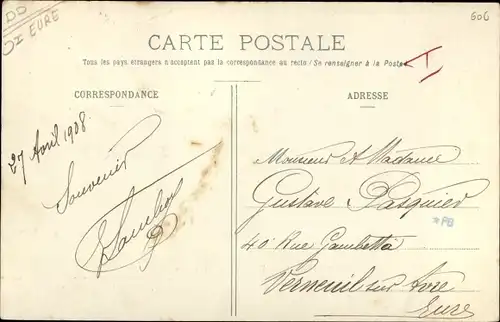 DD
27 EURE
606
CARTE POSTALE
Tous les pays étrangers n'acceptent pas la correspondance au recto (Se renseigner à la Poste)
CORRESPONDANCE
ADRESSE
27 Avril 1908
Souvenir
Monsieur et Madame
Gustave Pasquier
*PB
40 Rue Gambetta
Verneuil sur Avre
Eure